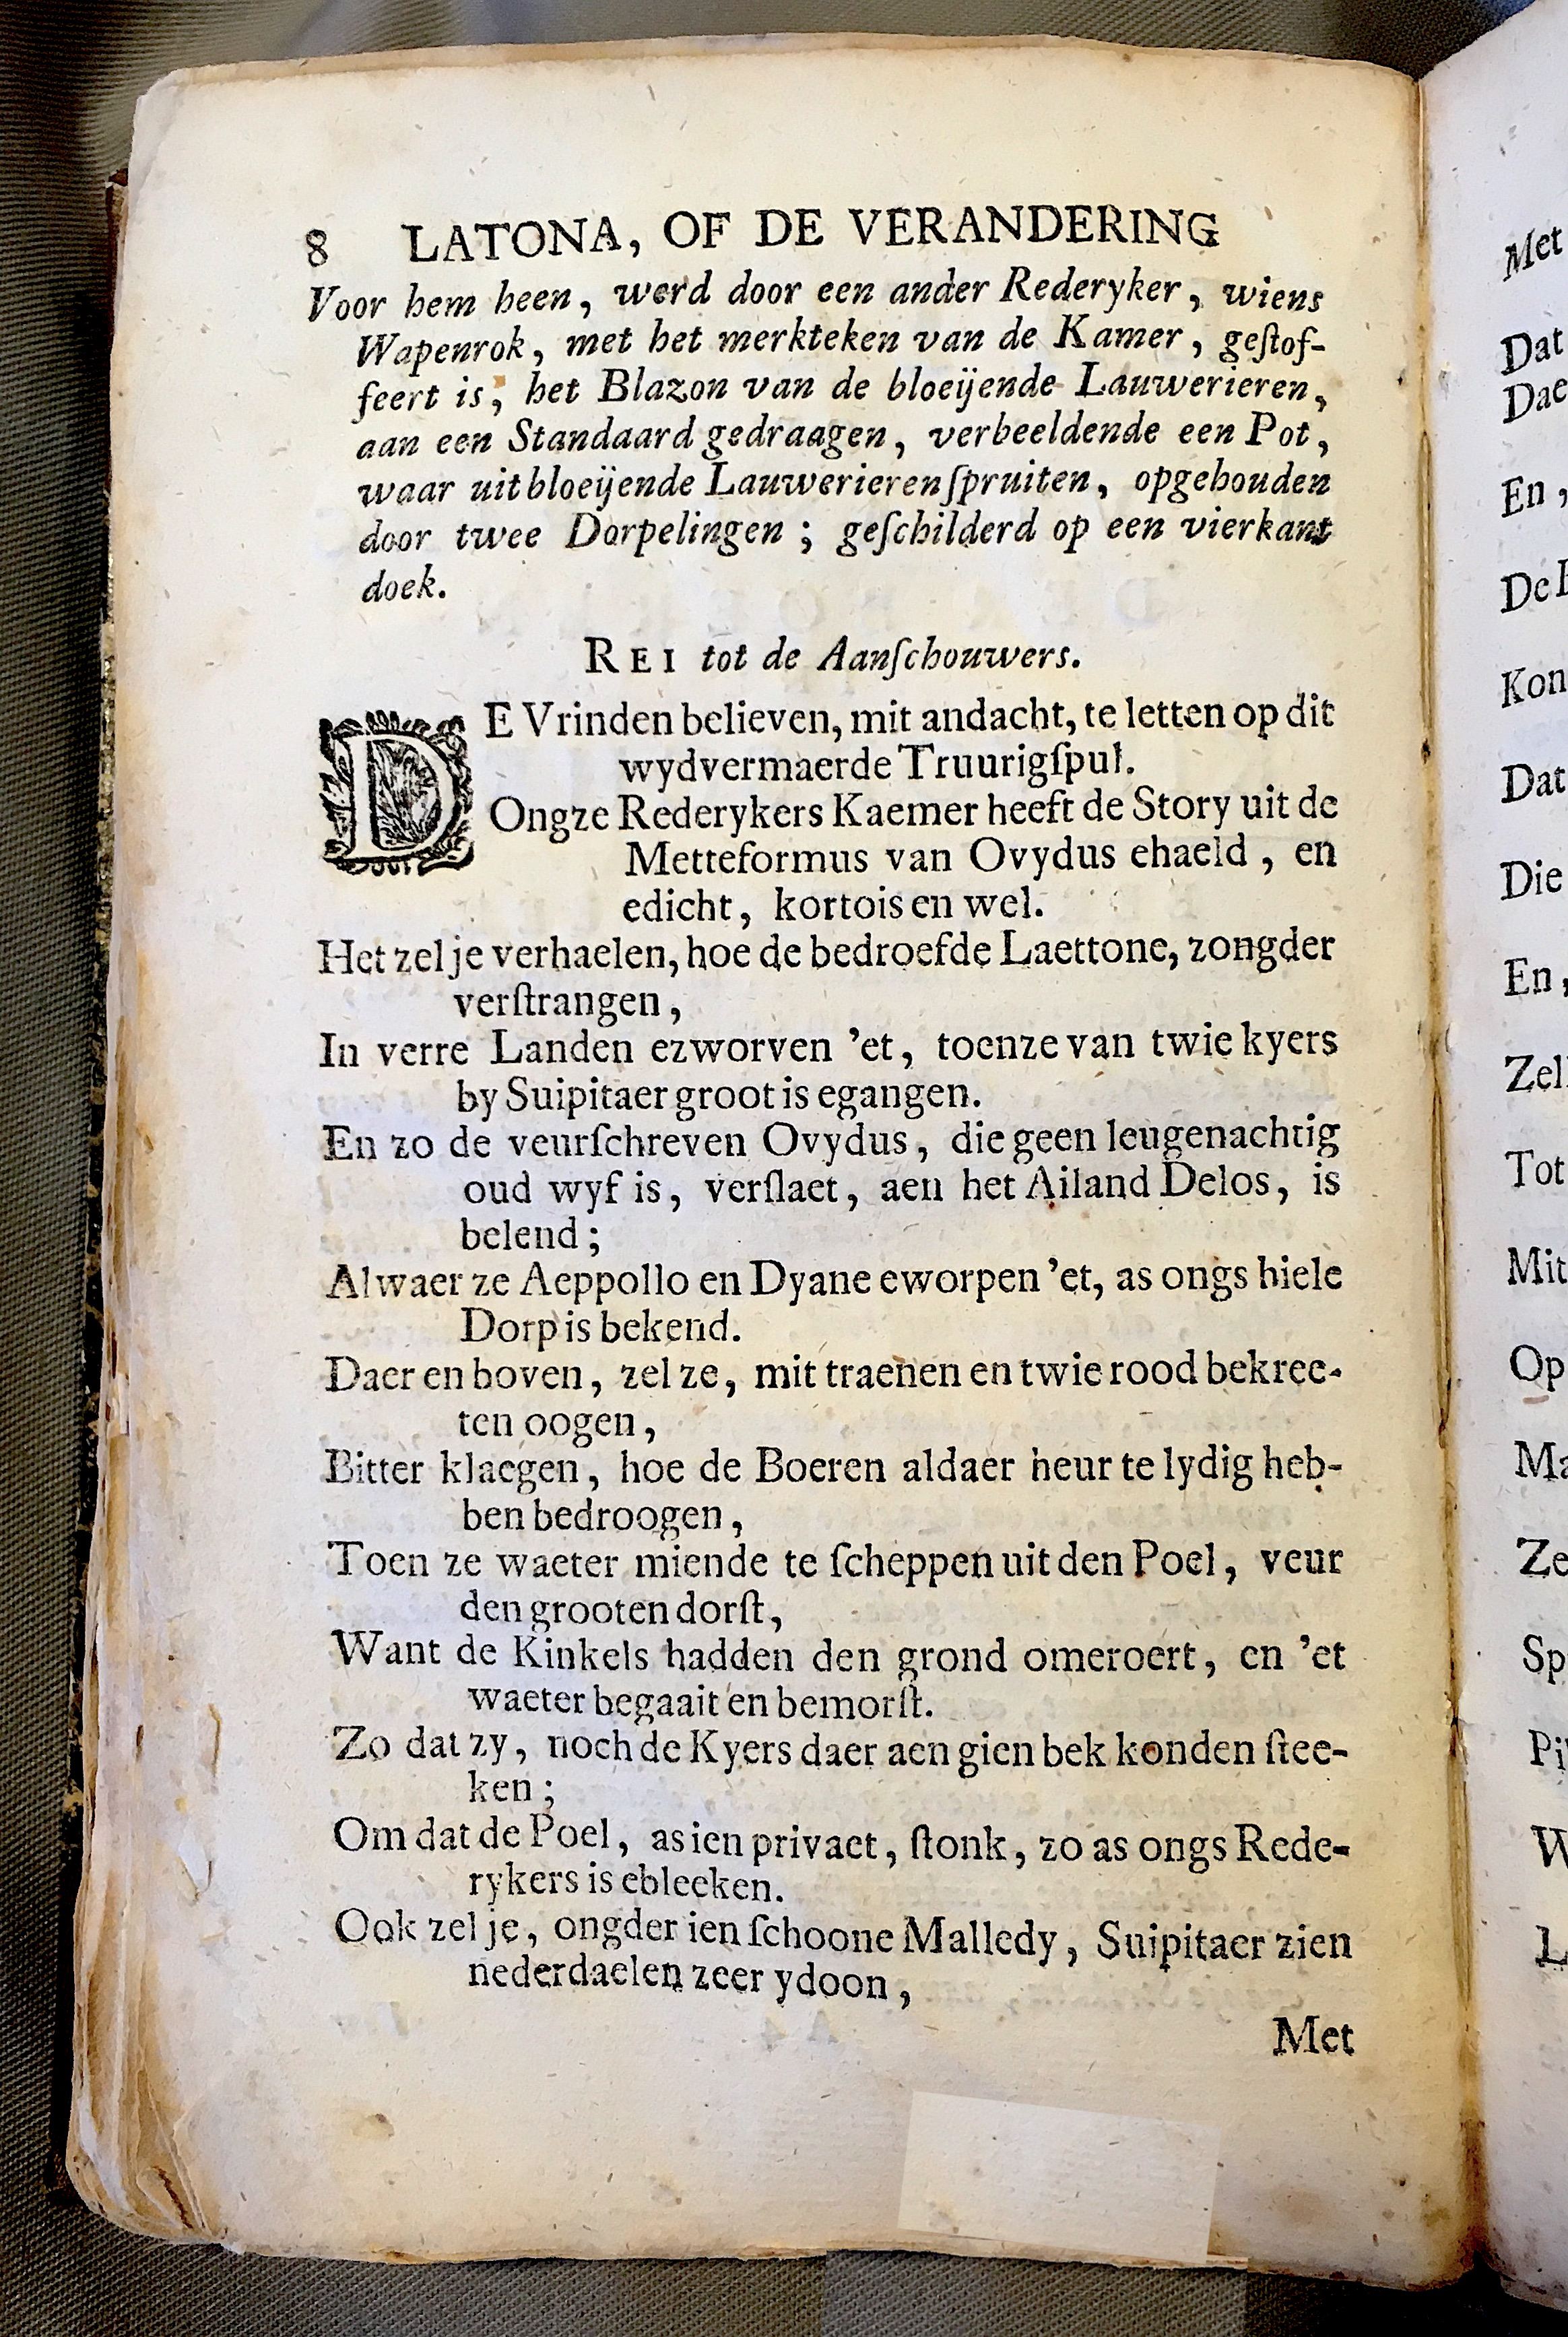 8 LATONA, OF DE VERANDERING
Voor hem heen, werd door een ander Rederyker, wiens
Wapenrok, met het merkteken van de Kamer, geſtof-
feert is, het Blazon van de bloeijende Lauwerieren,
aan een Standaard gedraagen, verbeeldende een Pot,
waar uit bloeijende Lauwerieren ſpruiten, opgehouden
door twee Dorpelingen; geſchilderd op een vierkant
doek.
REI tot de Aanſchouwers.
DE Vrinden believen, mit andacht, te letten op dit
wydvermaerde Truurigſpul.
Ongze Rederykers Kaemer heeft de Story uit de
Metteformus van Ovydus ehaeld, en
edicht, kortois en wel.
Het zel je verhaelen, hoe de bedroefde Laettone, zongder
verſtrangen,
In verre Landen ezworven 'et, toenze van twie kyers
by Suipitaer groot is egangen.
En zo de veurſchreven Ovydus, die geen leugenachtig
oud wyf is, verſlaet, aen het Ailand Delos, is
belend;
Alwaer ze Aeppollo en Dyane eworpen 'et, as ongs hiele
Dorp is bekend.
Daer en boven, zel ze, mit traenen en twie rood bekree-
ten oogen,
Bitter klaegen, hoe de Boeren aldaer heur te lydig heb-
ben bedroogen,
Toen ze waeter miende te ſcheppen uit den Poel, veur
den grooten dorſt,
Want de Kinkels hadden den grond omeroert, en 'et
waeter begaait en bemorſt.
Zo dat zy, noch de Kyers daer aen gien bek konden ſtee-
ken;
Om dat de Poel, as ien privaet, ſtonk, zo as ongs Rede-
rykers is ebleeken.
Ook zel je, ongder ien ſchoone Malledy, Suipitaer zien
nederdaelen zeer ydoon,
Met
Met
Dat
Dae
En,
De
Kon
Dat
Die
En,
Zel
Tot
Mit
Op
Ma
Ze
Sp
Pi
W
L